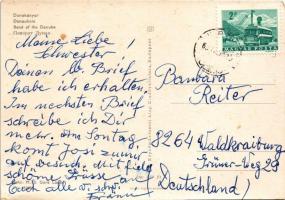 Dunakanyar
Donauknie
Bend of the Danube
Meine Liebe!
Schwester
Deinen lb. Brief
habe ich erhalten.
Im nächsten Brief
schreibe ich Dir
mehr. Am Sontag
komt Josi zu mir
auf Besuch. Mit viel
schöne Grüsse an
Euch alle
2 Ft
MAGYAR POSTA
Barbara
Reiter
8264 Waldkraiburg
Grüner-Weg 29
(Deutschland)